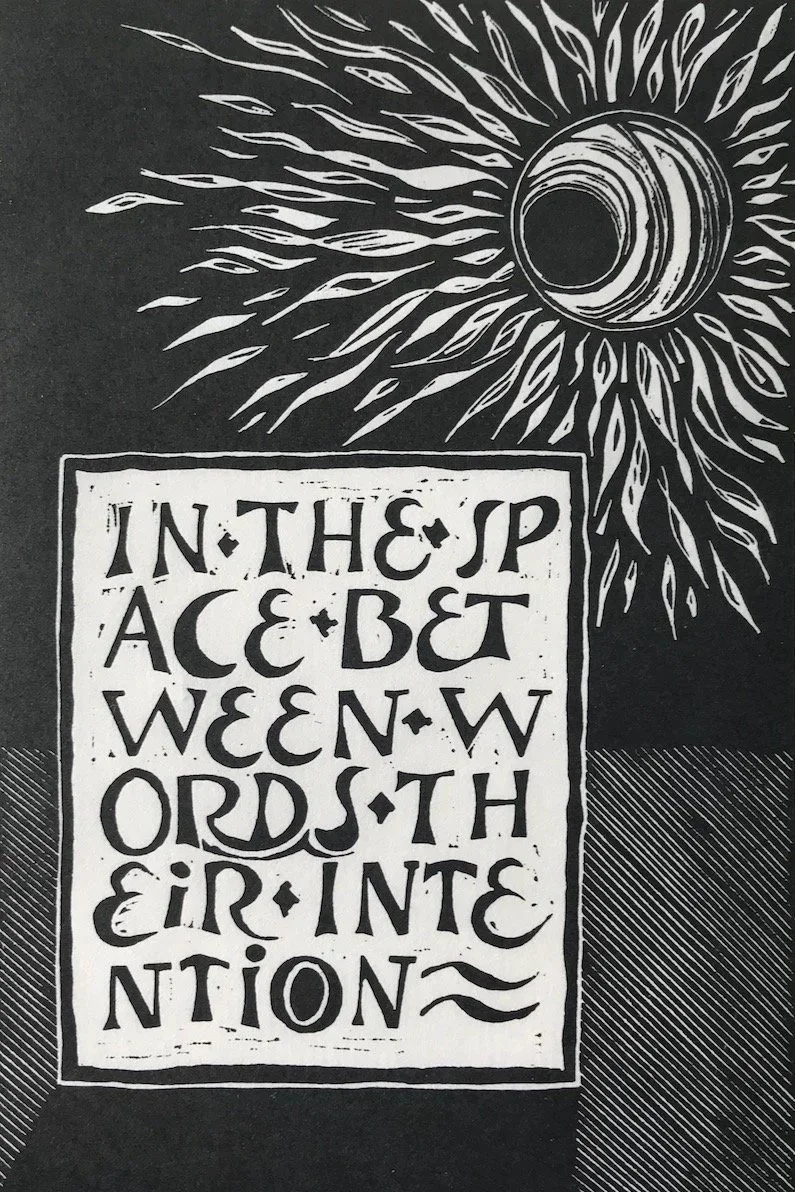 IN·THE·SP
ACE·BET
WEEN·W
ORDS·TH
EiR·INTE
NTiON